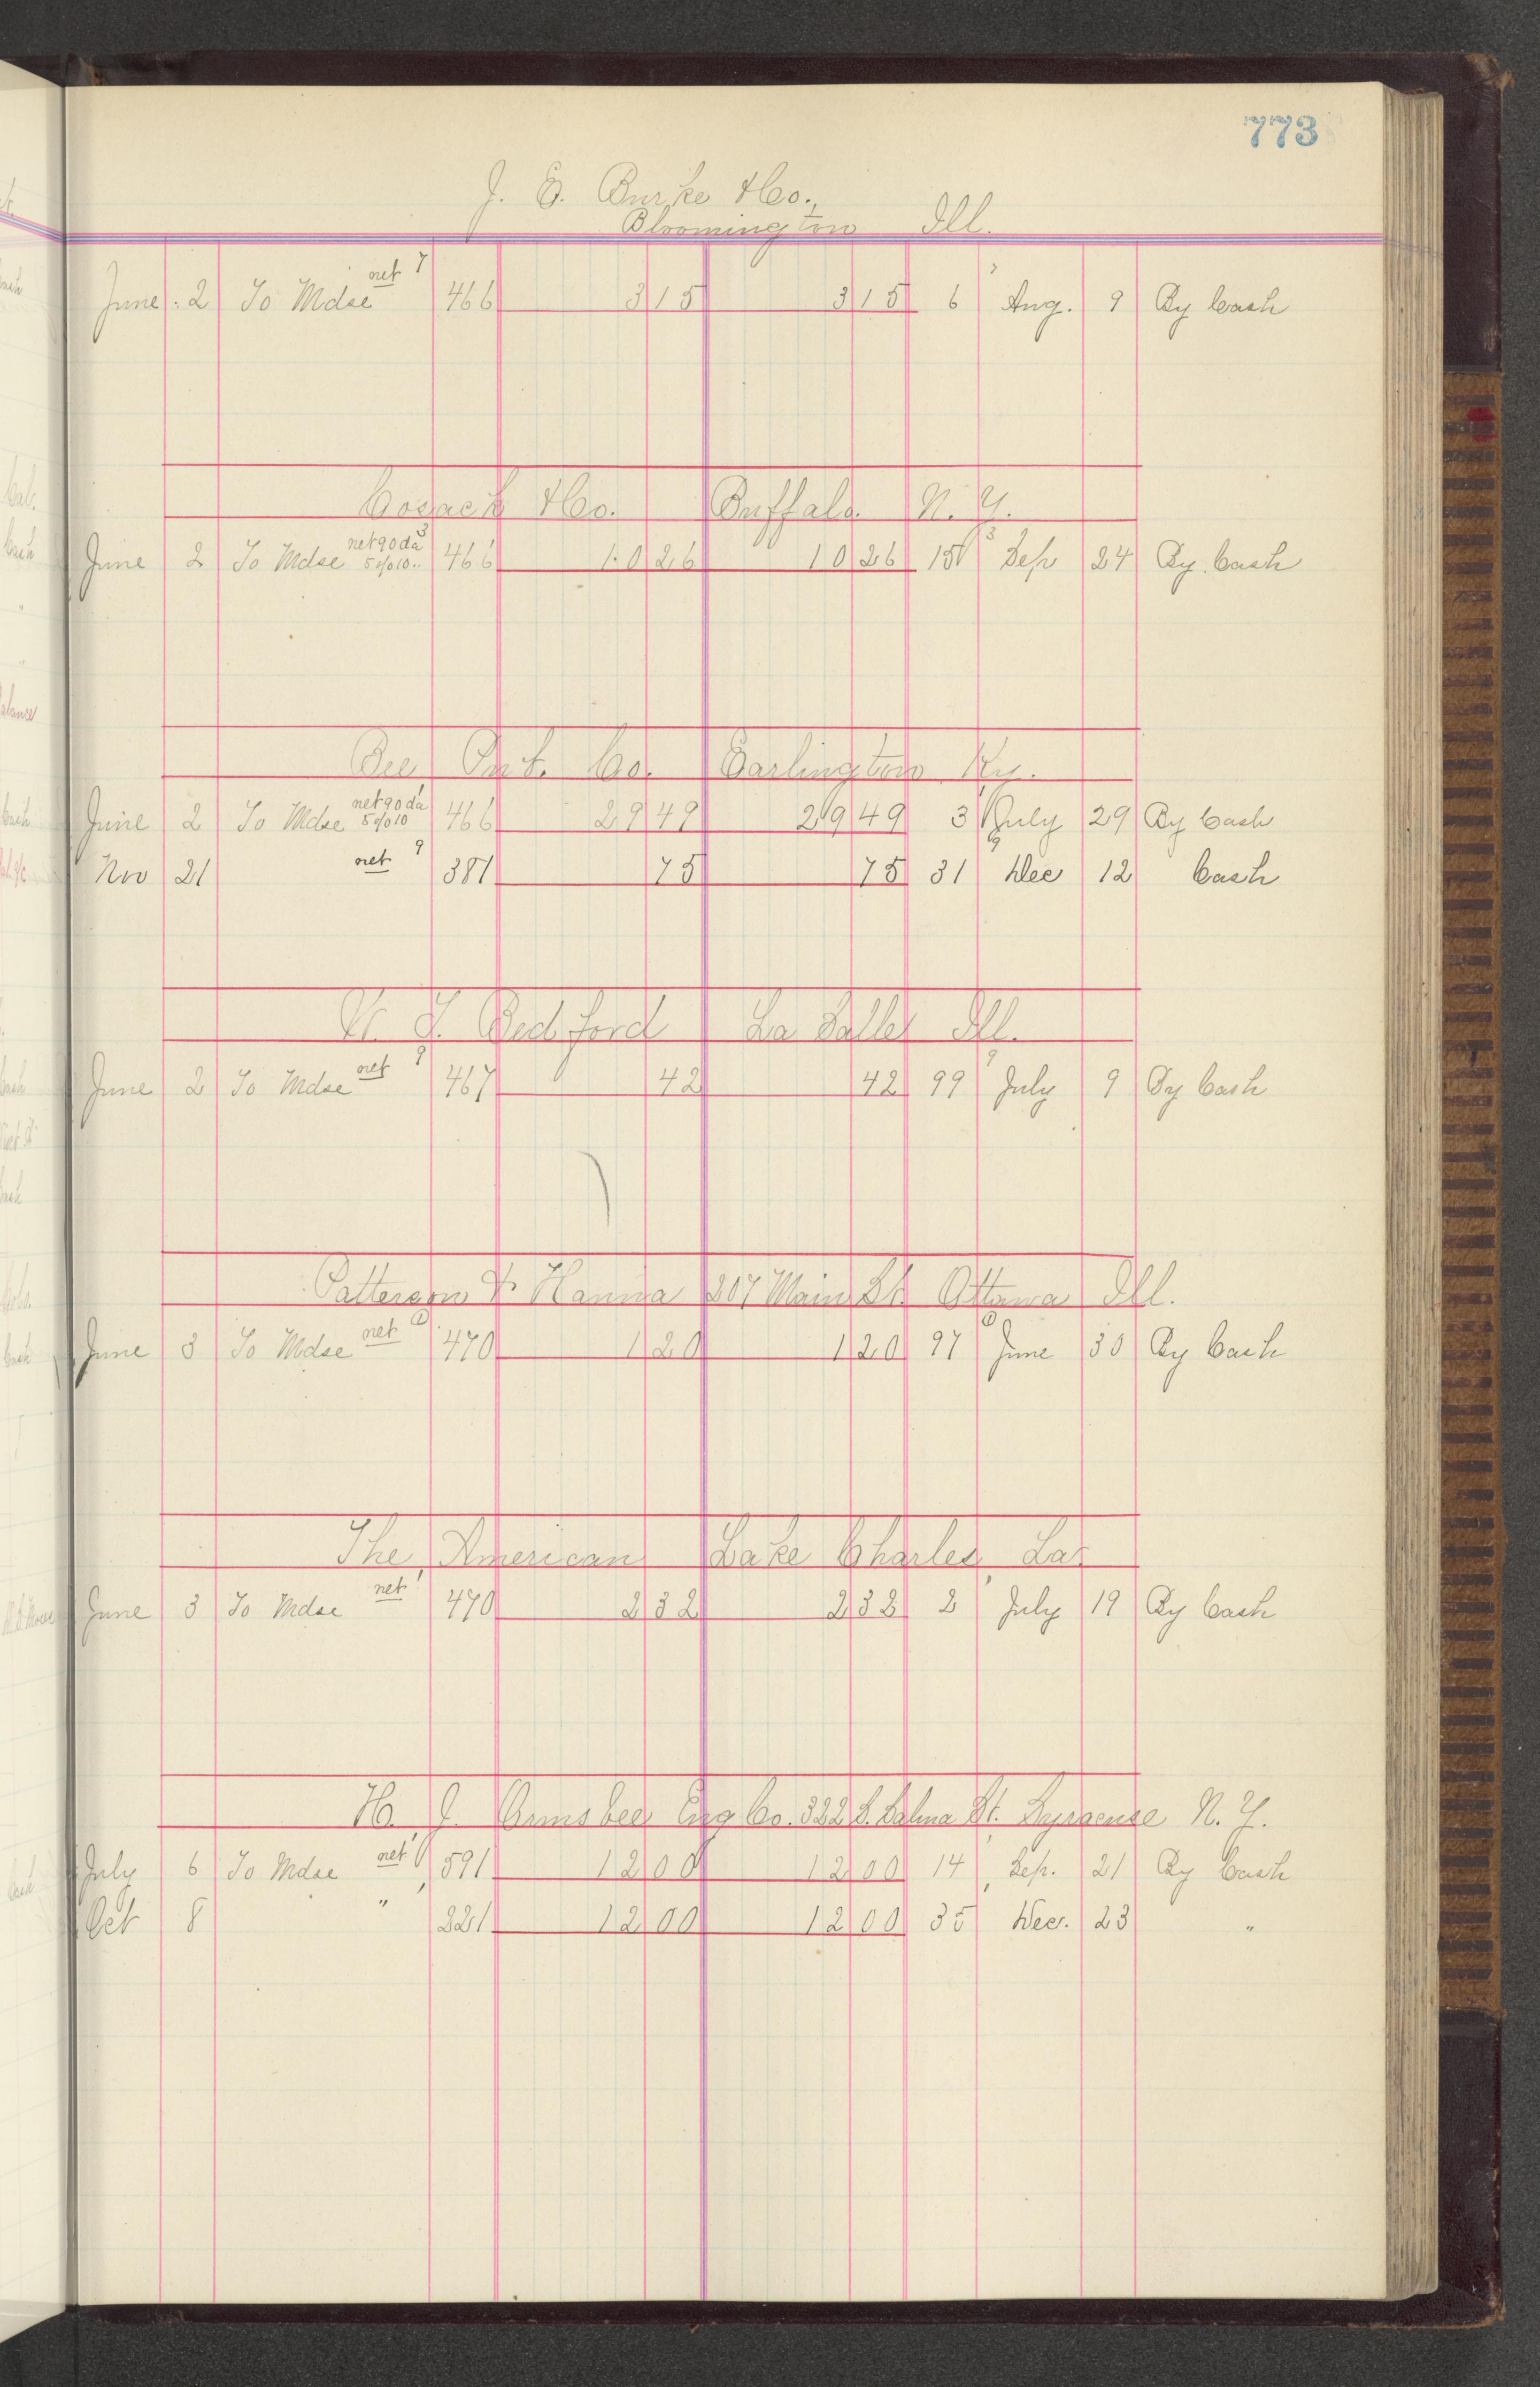 773
J. E. Burke & Co.,
Bloomington Ill.
June 2 To Mdse net 7 466 3 15 3 15 6 7 Aug. 9 By Cash
Cosack & Co. Buffalo. N. Y.
June 2 To Mdse net 90 da 5% 10 3 466 10 26 10 26 151 3 Sep 24 By Cash
Bee Pnt. Co. Earlington Ky.
June 2 To Mdse net 90 da 5% 10 1 466 29 49 29 49 3 July 29 By Cash
Nov 21 net 9 381 75 75 31 9 Dec 12 Cash
Bedford La Salle Ill.
June 2 To Mdse net 9 467 42 42 99 9 July 9 By Cash
Patterson & Hanna 207 Main St. Ottawa Ill.
June 3 To Mdse net 1 470 1 20 1 20 97 1 June 30 By Cash
The American Lake Charles, La.
June 3 To Mdse net 1 470 2 32 2 32 2 July 19 By Cash
H. J. Ormsbee Eng Co. 322 S. Salina St. Syracuse N. Y.
July 6 To Mdse net 1 591 12 00 12 00 14 Sep. 21 By Cash
Oct 8 " 221 12 00 12 00 35 Dec. 23 "